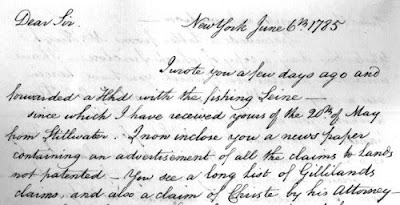 Dear Sir. New York June 6th 1785
I wrote you a few days ago and
forwarded a Hhd with the fishing Seine —
since which I have received yours of the 20th of May
from Stillwater. I now inclose you a news paper
containing an advertisement of all the claims to Lands
not patented — You see a long list of Gillilands
claims, and also a claim of Christe by his Attorney